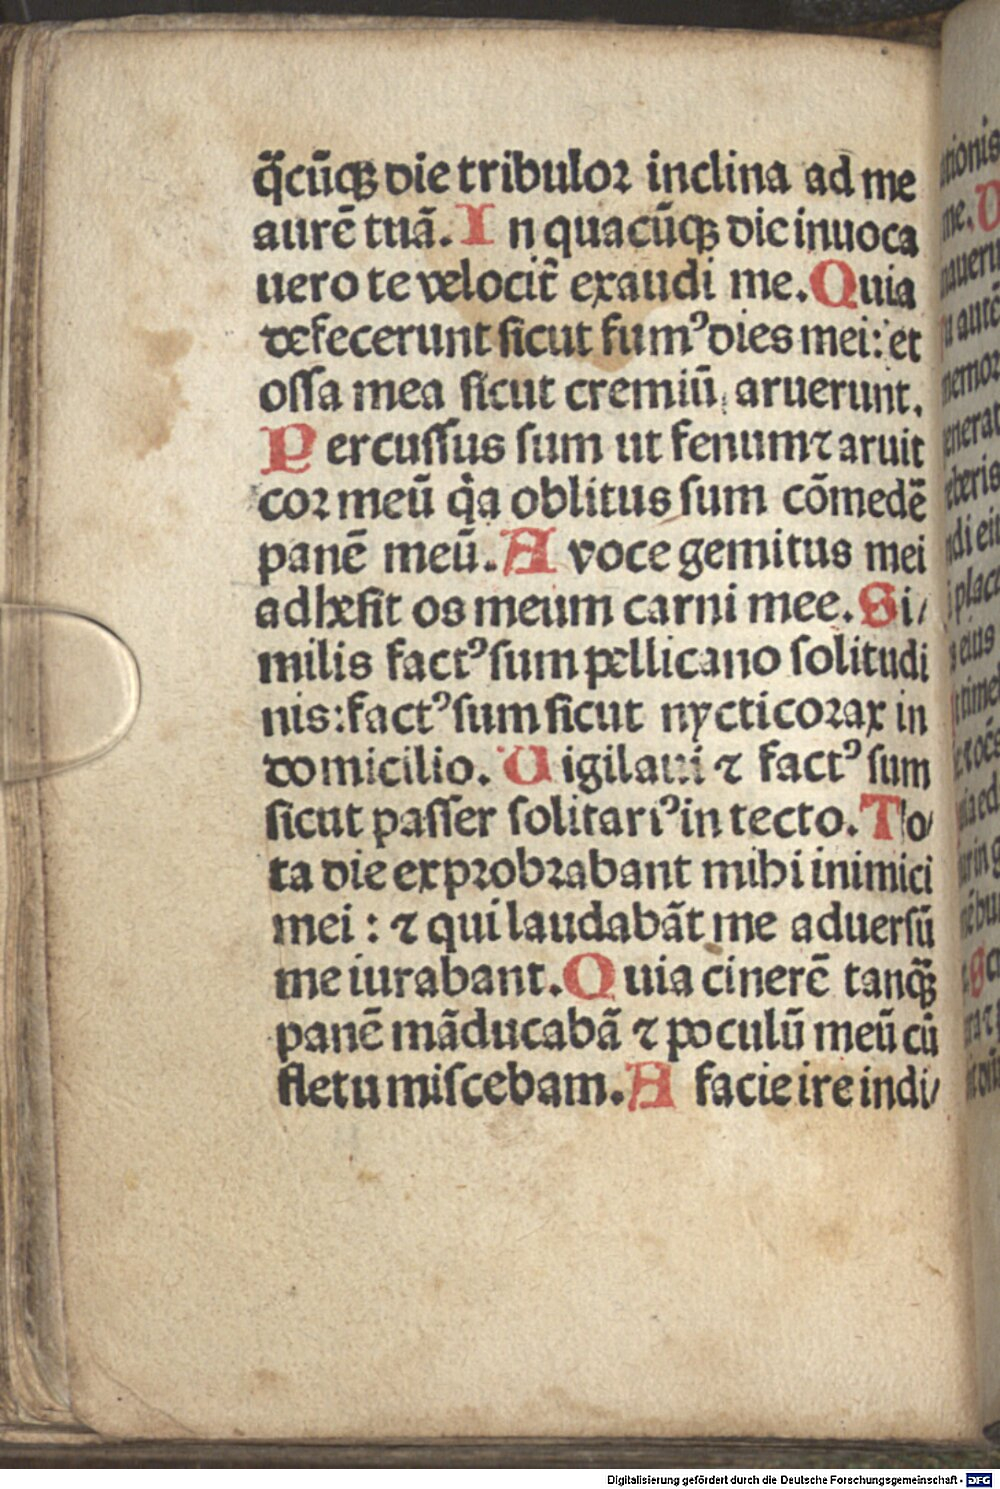 q̄cūqꝫ die tribulor inclina ad me
aurē tuā. In quacūqꝫ die inuoca
uero te velocit̄ exaudi me. Quia
defecerunt sicut fumꝰ dies mei: et
ossa mea sicut cremiū aruerunt.
Percussus sum ut fenum ⁊ aruit
cor meū qͥa oblitus sum cōmedē
panē meū. A voce gemitus mei
adhesit os meum carni mee. Si/
milis factꝰ sum pellicano solitudi
nis: factꝰ sum sicut nycticorax in
domicilio. Uigilaui ⁊ factꝰ sum
sicut passer solitariꝰ in tecto. To/
ta die exprobrabant mihi inimici
mei : ⁊ qui laudabāt me aduersū
me iurabant. Quia cinerē tanqꝫ̄
panē māducabā ⁊ poculū meū cū
fletu miscebam. A facie ire indi/
Digitalisierung gefördert durch die Deutsche Forschungsgemeinschaft - DFG